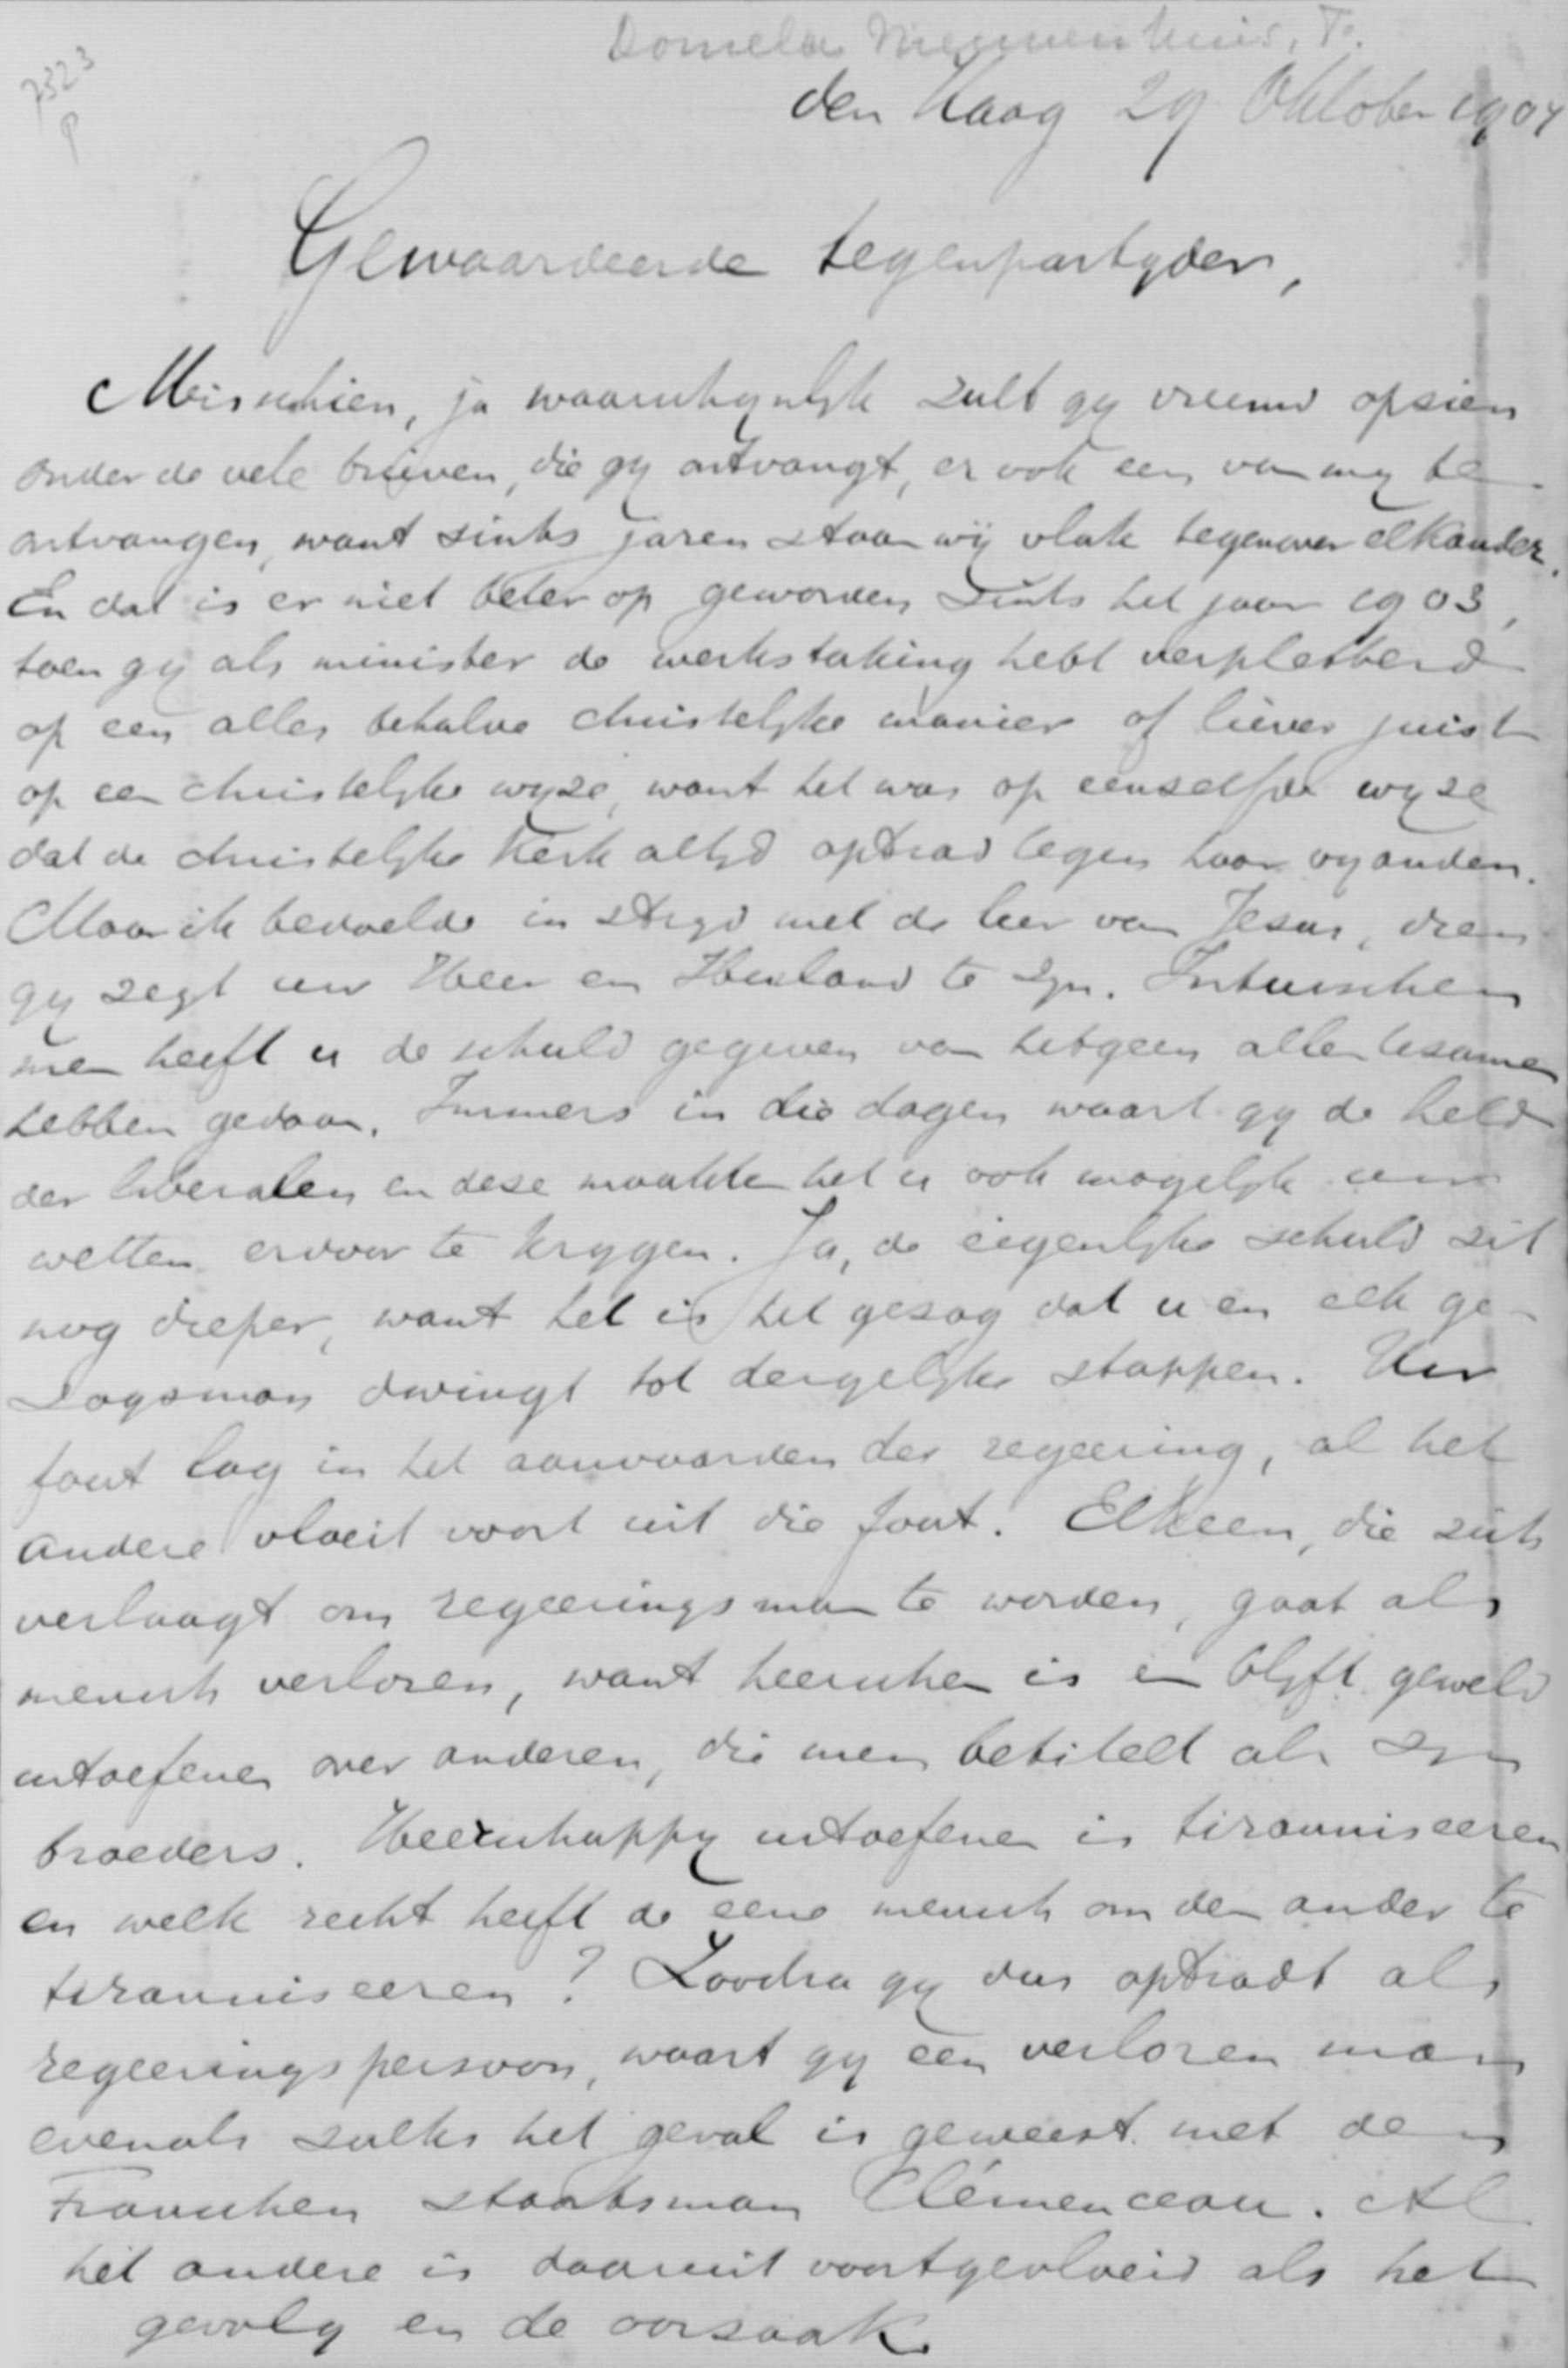 Domela Nieuwenhuis, F.
7323
P
den Haag 29 Oktober 1907
Gewaardeerde tegenpartyder,
Misschien, ja waarschynlyk zult gy vreemd opzien
onder de vele brieven, die gy ontvangt, er ook een van my te
ontvangen, want sints jaren staan wij vlak tegenover elkander.
En dat is er niet beter op geworden sints het jaar 1903,
toen gy als minister de werkstaking hebt verpletterd
op een alles behalve christelyke manier of liever juist
op een christelyke wyze, want het was op eenzelfde wyze
dat de christelyke kerk altyd optrad tegen haar vyanden.
Maar ik bedoelde in stryd met de leer van Jezus, dien
gy zegt uw Heer en Heiland te zyn. Intusschen
men heeft u de schuld gegeven van hetgeen allen tesamen
hebben gedaan. Immers in die dagen waart gy de held
der liberalen en deze maakten het u ook mogelyk uw
wetten ervoor te krygen. Ja, de eigenlyke schuld zit
nog dieper, want het is het gezag dat u en elk ge-
zagsman dwingt tot dergelyke stappen. Uw
fout lag in het aanvaarden der regeering, al het
andere vloeit voort uit die fout. Elkeen, die zich
verlaagt om regeeringsman te worden, gaat als
mensch verloren, want heerschen is en blyft geweld
uitoefenen over anderen, die men betitelt als zyn
broeders. Heerschappy uitoefenen is tiranniseeren
en welk recht heeft de eene mensch om den ander te
tiranniseeren? Zoodra gy dus optradt als
regeeringspersoon, waart gy een verloren man
evenals zulks het geval is geweest met den
Franschen staatsman Clémenceau. Al
het andere is daaruit voortgevloeid als het
gevolg en de oorzaak.